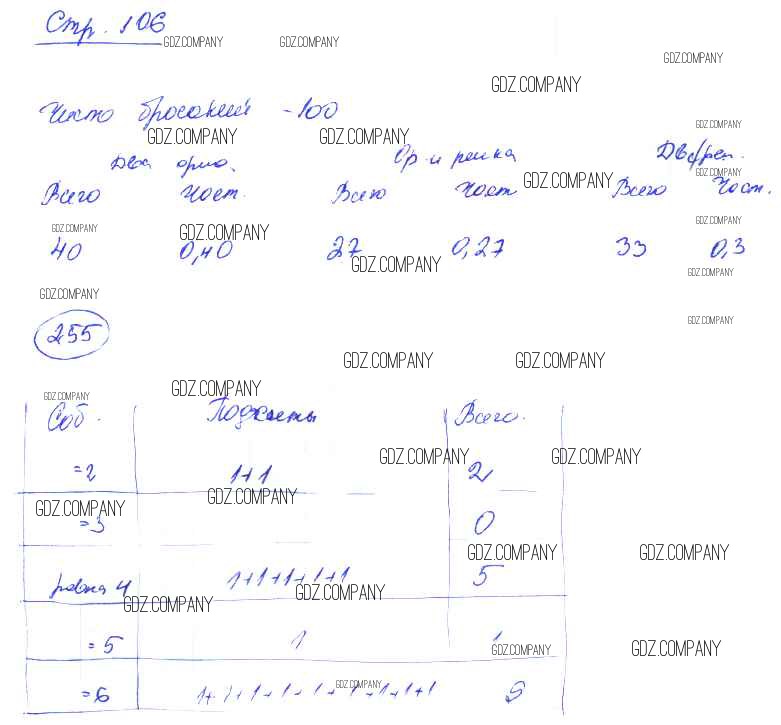 Стр. 106
GDZ.COMPANY GDZ.COMPANY
GDZ.COMPANY
GDZ.COMPANY
Число бросаний - 100
GDZ.COMPANY
GDZ.COMPANY GDZ.COMPANY
Два орла. Ор и решка Две реш.
GDZ.COMPANY GDZ.COMPANY
Всего Част. Всего Част Всего Част.
GDZ.COMPANY GDZ.COMPANY GDZ.COMPANY
40 0,40 27 0,27 33 0,3
GDZ.COMPANY GDZ.COMPANY
GDZ.COMPANY
GDZ.COMPANY
255
GDZ.COMPANY GDZ.COMPANY
GDZ.COMPANY GDZ.COMPANY
Соб. Подсчеты Всего.
GDZ.COMPANY GDZ.COMPANY
=2 1+1 2
GDZ.COMPANY GDZ.COMPANY
=3 0
GDZ.COMPANY GDZ.COMPANY
равна 4 1+1+1+1+1 5
GDZ.COMPANY GDZ.COMPANY
=5 1
GDZ.COMPANY GDZ.COMPANY
GDZ.COMPANY
=6 1+1+1+1+1+1+1+1+1 9